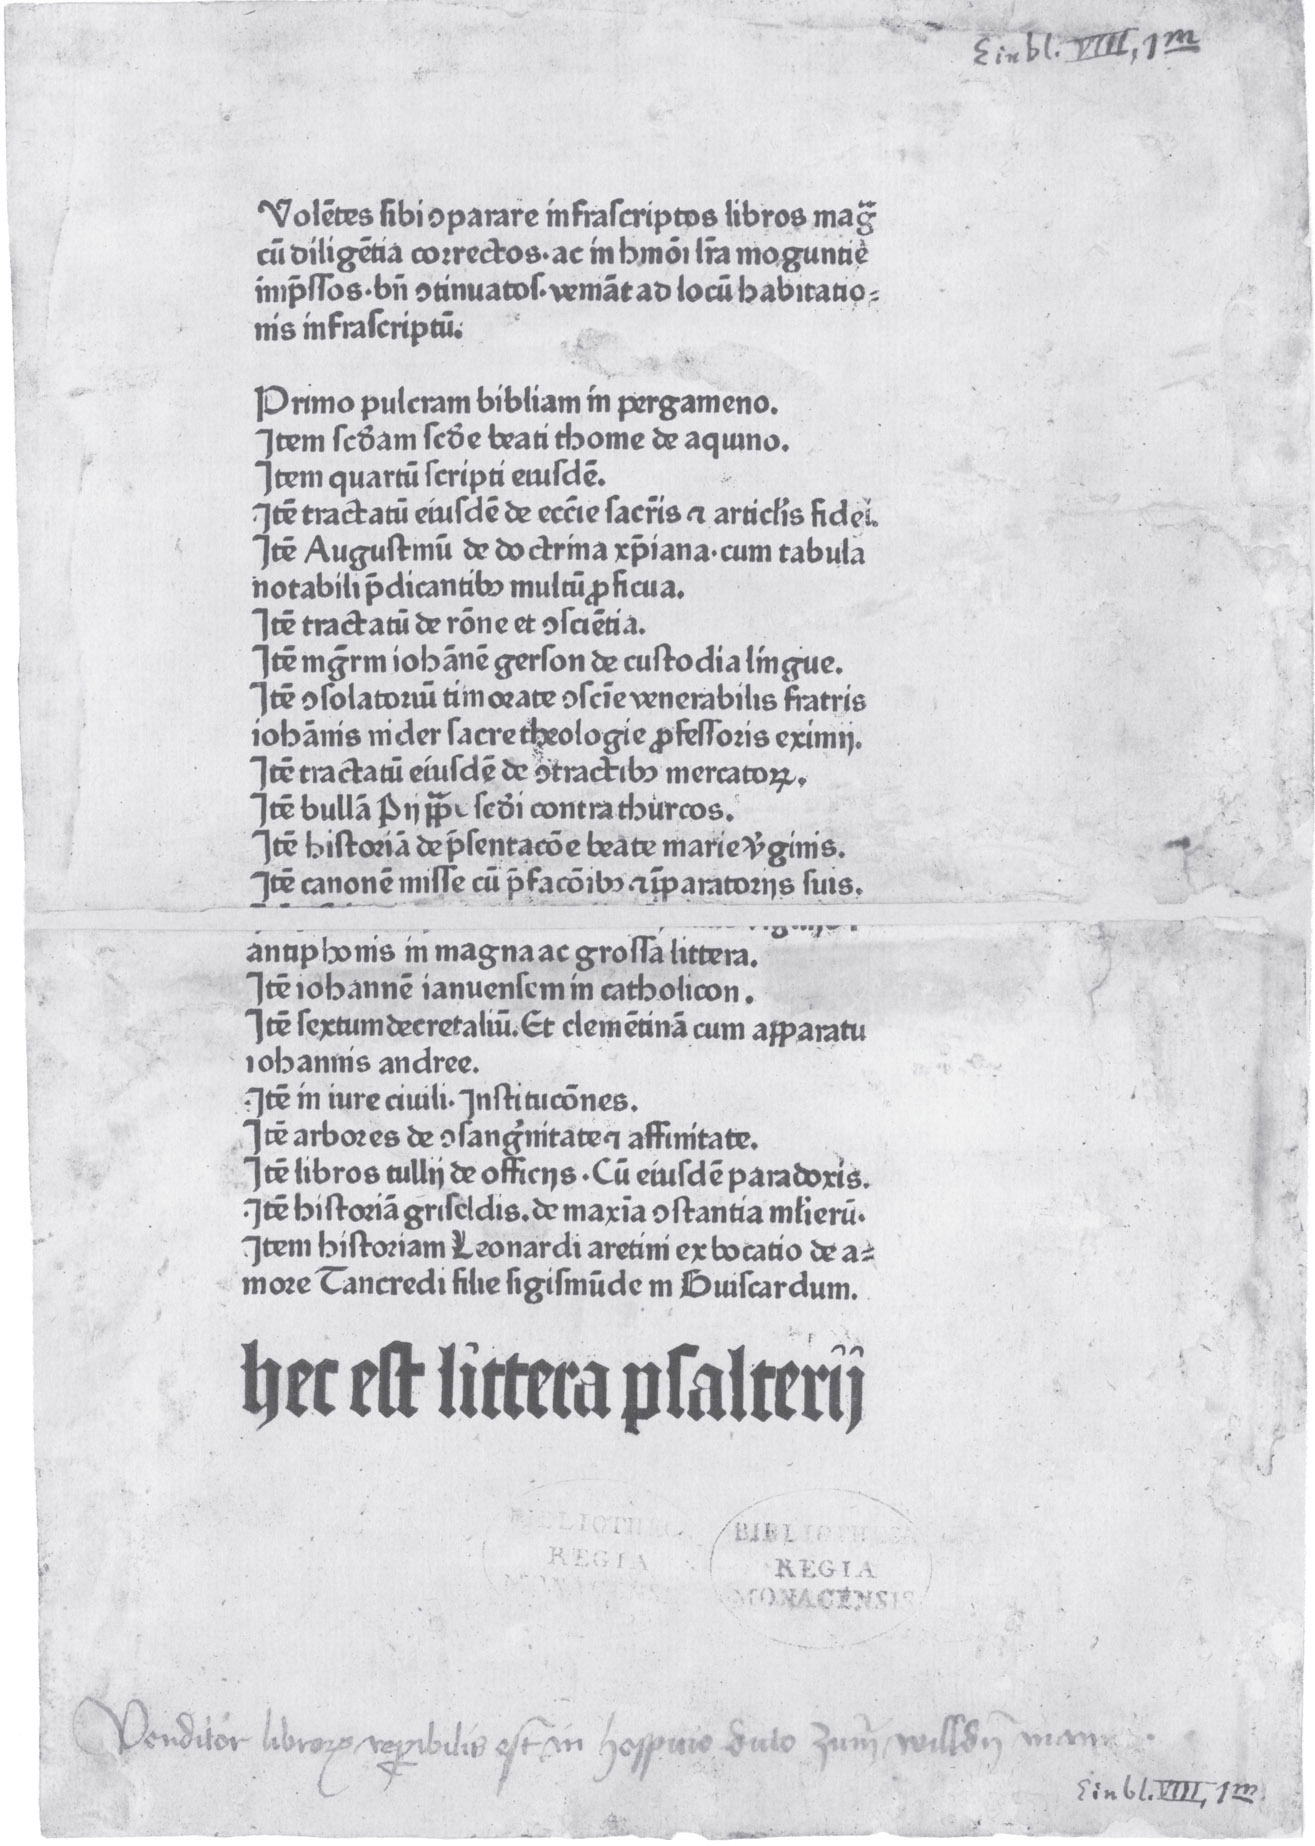 Einbl. VIII, 1m
Volētes sibi ↄparare infrascriptos libros mag̃
cū diligētia correctos. ac in hmōi lr̄a moguntie
imp̄ssos. bn̄ ↄtinuatos. veniāt ad locū habitatio⸗
nis infrascriptū.
Primo pulcram bibliam in pergameno.
Item scd̄am scd̄e beati thome de aquino.
Item quartū scripti eiusdē.
Itē tractatū eiusdē de ecc̄ie sacr̄is ⁊ articl̄is fidei.
Itē Augustinū de doctrina xp̄iana. cum tabula
notabili p̄dicantibꝫ multū ꝓficua.
Itē tractatū de rōne et ↄsciētia.
Itē mḡrm iohānē gerson de custodia lingue.
Itē ↄsolatoriū timorate ↄscīe venerabilis fratris
iohānis nider sacre theologie ꝓfessoris eximij.
Itē tractatū eiusdē de ↄtractibꝫ mercatoꝝ.
Itē bullā Pij pp̄ scd̄i contra thurcos.
Itē historiā de p̄sentacōe beate marie v̓ginis.
Itē canonē misse cū p̄facōibꝫ ⁊ īpparatorijs suis.
antiphonis in magna ac grossa littera.
Itē iohannē ianuensem in catholicon.
Itē sextum decretaliū. Et clemētinā cum apparatu
iohannis andree.
Itē in iure ciuili. Institucōnes.
Itē arbores de ↄsang̓nitate ⁊ affinitate.
Itē libros tullij de officijs. Cū eiusdē paradoxis.
Itē historiā griseldis. de maxīa ↄstantia ml̓ierū.
Item historiam Leonardi aretini ex bocatio de a⸗
more Tancredi filie sigismūde in Guiscardum.
hec est littera psalterij
BIBLIOTHECA BIBLIOTHECA
REGIA REGIA
MONACENSIS MONACENSIS
Venditor libroꝝ rep̱ibilis est in hospicio dicto zum willden mann
Einbl. VIII, 1m